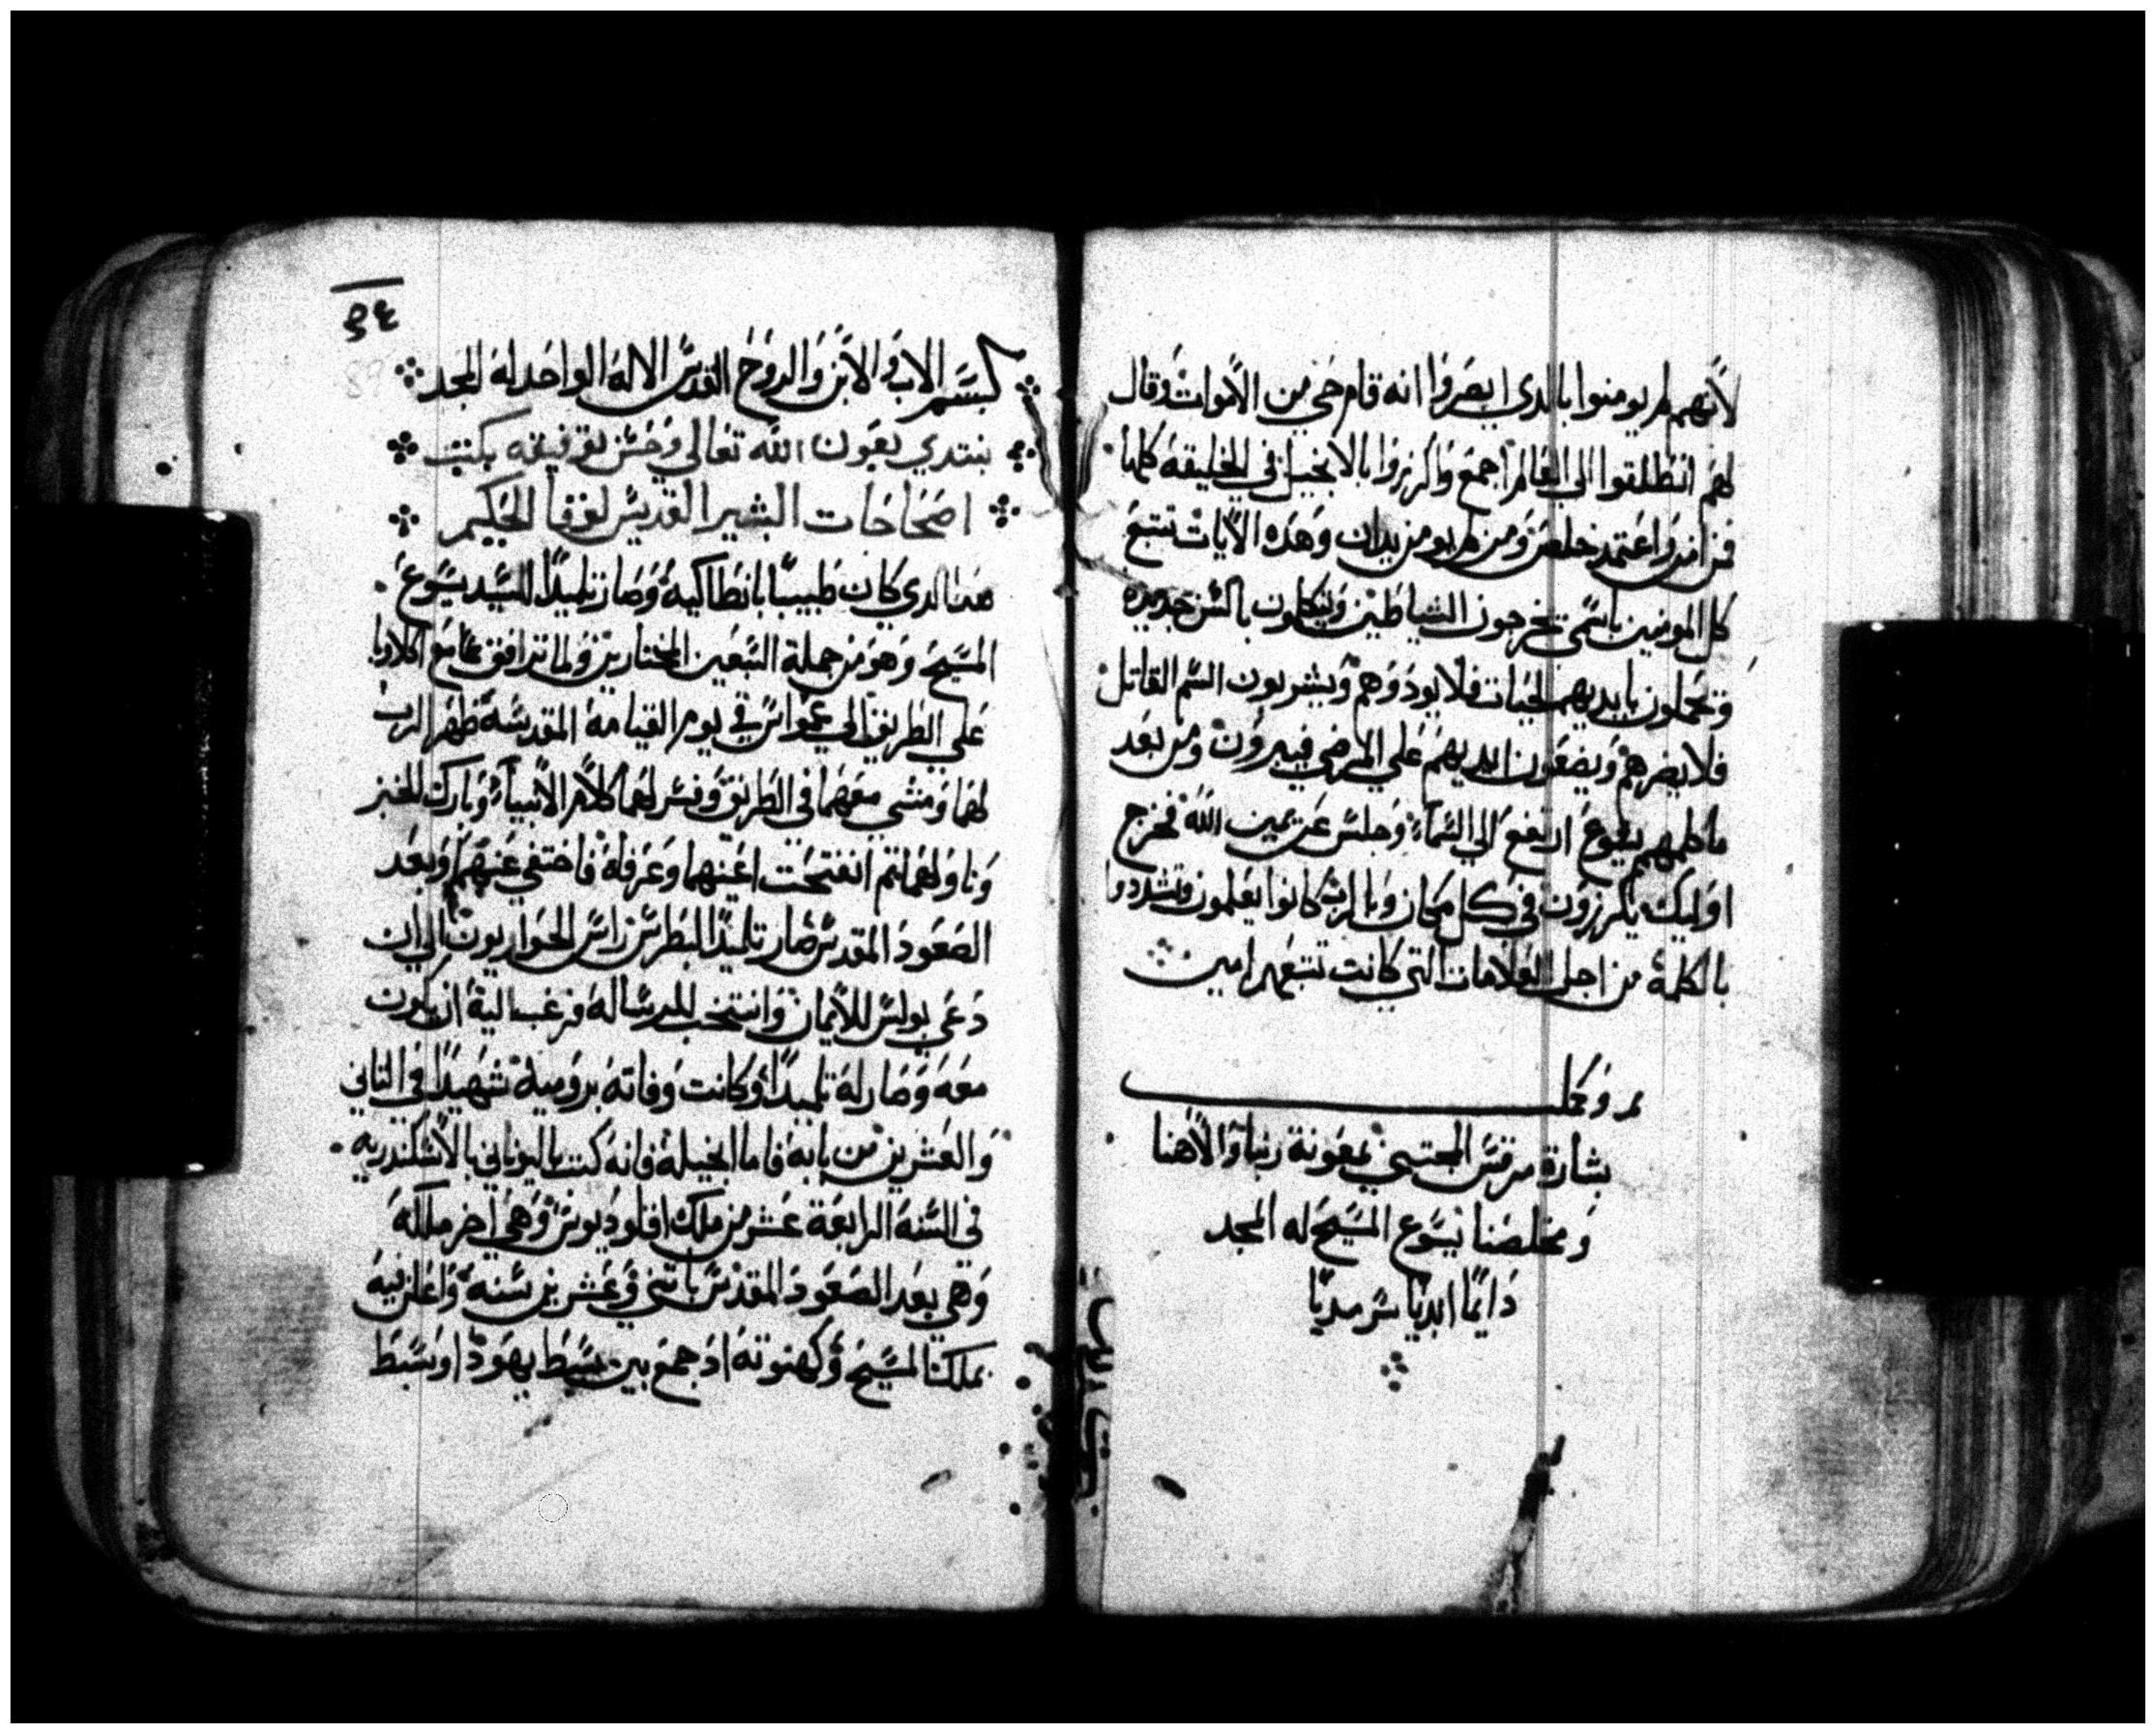 لانهم لم يومنوا بالدي ابصروا انه قام حي من الاموات وقال
لهم انطلقوا الي العالم اجمع واكرزوا بالانجيل في الخليقه كلها
فمن امن واعتمد خلص ومن لم يومن يدان وهده الايات تتبع
كل المومنين باسمي يخرجون الشياطين ويتكلون بالسن جديده
وتحملون بايديهم الحيات فلا يودوهم ويشربون السم القاتل
فلا يضرهم ويضعون ايديهم علي المرضي فيبرون ومن بعد
ما كلمهم يسوع ارتفع الي السماء وجلس عن يمين الله فخرج
اوليك يكرزون في كل مكان وبالرب كانوا يعلمون وتشددوا
بالكلمة من اجل العلامات التي كانت تتبعهم امين
تم وكمل
بشارة مرقس المجتبي بمعونة ربنا والاهنا
ومخلصنا يسوع المسيح له المجد
دايما ابديا سرمديا
٩٤
89
بسم الاب والابن والروح القدس الاله الواحد له المجد
نبتدي بعون الله تعالي وحسن توفيقه بكتب
اصحاحات البشير القديس لوقا الحكيم
هدا الدي كان طبيبا بانطاكية وصار تلميدا للسيد يسوع
المسيح وهو من جملة السبعين المختارين ولما ترافق مع اكلاوبا
علي الطريق الي عمواس في يوم القيامة المقدسة ظهر الرب
لهما ومشي معهما في الطريق وفسر لهما كلام الانبياء وبارك الخبز
وناولهما تم انفتحت اعينهما وعرفاه فاختفي عنهم وبعد
الصعود المقدس صار تلميدا لبطرس راس الحواريون الي ان
دعي بولس للايمان وانتخب للرسالة فرغب اليه ان يكون
معه وصار له تلميدا وكانت وفاته برومية شهيدا في التاني
والعشرين من بابه فاما انجيله فانه كتب باليوناني بالاسكندريه
في السنه الرابعة عشر من ملك اقلوديوس وهي اخر ملكه
وهي بعد الصعود المقدس باتني وعشرين سنه واعلن فيه
بملكنا المسيح وكهنوته اد جمع بين سبط يهودا وسبط